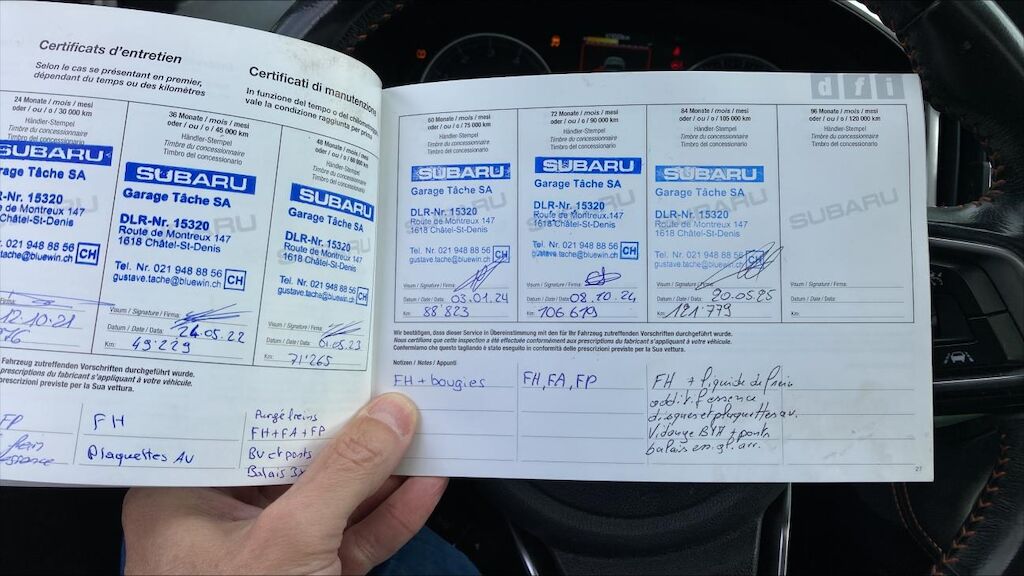 Certificats d'entretien
Selon le cas se présentant en premier,
dépendant du temps ou des kilomètres
Certificati di manutenzione
In funzione del tempo o del chilometraggio
vale la condizione raggiunta per prima
24 Monate / mois / mesi
oder / ou / o / 30 000 km
Händler-Stempel
Timbre du concessionnaire
Timbro del concessionario
SUBARU
Garage Tâche SA
DLR-Nr. 15320
Route de Montreux 147
Châtel-St-Denis
Nr. 021 948 88 56
tache@bluewin.ch CH
Firma:
12.10.21
776
36 Monate / mois / mesi
oder / ou / o / 45 000 km
Händler-Stempel
Timbre du concessionnaire
Timbro del concessionario
SUBARU
Garage Tâche SA
DLR-Nr. 15320
Route de Montreux 147
1618 Châtel-St-Denis
Tel. Nr. 021 948 88 56
gustave.tache@bluewin.ch CH
Visum / Signature / Firma:
Datum / Date / Data: 24.05.22
Km: 49'229
48 Monate / mois / mesi
oder / ou / o / 60 000 km
Händler-Stempel
Timbre du concessionnaire
Timbro del concessionario
SUBARU
Garage Tâche SA
DLR-Nr. 15320
Route de Montreux 147
1618 Châtel-St-Denis
Tel. Nr. 021 948 88 56
gustave.tache@bluewin.ch CH
Visum / Signature / Firma:
Datum / Date / Data: 05.23
Km: 71'265
Fahrzeug zutreffenden Vorschriften durchgeführt wurde.
prescriptions du fabricant s'appliquant à votre véhicule.
prescrizioni previste per la Sua vettura.
FP
frein
essence
FH
Plaquettes AV
Purge freins
FH+FA+FP
BV et ponts
Balais
dfi
60 Monate / mois / mesi
oder / ou / o / 75 000 km
Händler-Stempel
Timbre du concessionnaire
Timbro del concessionario
SUBARU
Garage Tâche SA
DLR-Nr. 15320
Route de Montreux 147
1618 Châtel-St-Denis
Tel. Nr. 021 948 88 56
gustave.tache@bluewin.ch CH
Visum / Signature / Firma:
Datum / Date / Data: 03.01.24
Km: 88'823
72 Monate / mois / mesi
oder / ou / o / 90 000 km
Händler-Stempel
Timbre du concessionnaire
Timbro del concessionario
SUBARU
Garage Tâche SA
DLR-Nr. 15320
Route de Montreux 147
1618 Châtel-St-Denis
Tel. Nr. 021 948 88 56
gustave.tache@bluewin.ch CH
Visum / Signature / Firma:
Datum / Date / Data: 08.10.24
Km: 106 619
84 Monate / mois / mesi
oder / ou / o / 105 000 km
Händler-Stempel
Timbre du concessionnaire
Timbro del concessionario
SUBARU
Garage Tâche SA
DLR-Nr. 15320
Route de Montreux 147
1618 Châtel-St-Denis
Tel. Nr. 021 948 88 56
gustave.tache@bluewin.ch CH
Visum / Signature / Firma:
Datum / Date / Data: 20.05.25
Km: 121'779
96 Monate / mois / mesi
oder / ou / o / 120 000 km
Händler-Stempel
Timbre du concessionnaire
Timbro del concessionario
SUBARU
Visum / Signature / Firma:
Datum / Date / Data:
Km:
Wir bestätigen, dass dieser Service in Übereinstimmung mit den für Ihr Fahrzeug zutreffenden Vorschriften durchgeführt wurde.
Nous certifions que cette inspection a été effectuée conformément aux prescriptions du fabricant s'appliquant à votre véhicule.
Confermiamo che questo tagliando è stato eseguito in conformità delle prescrizioni previste per la Sua vettura.
Notizen / Notes / Appunti
FH + bougies
FH, FA, FP
FH + liquide de frein
additif essence
disques et plaquettes av.
Vidange BVA + ponts
balais ess. gl. arr.
27